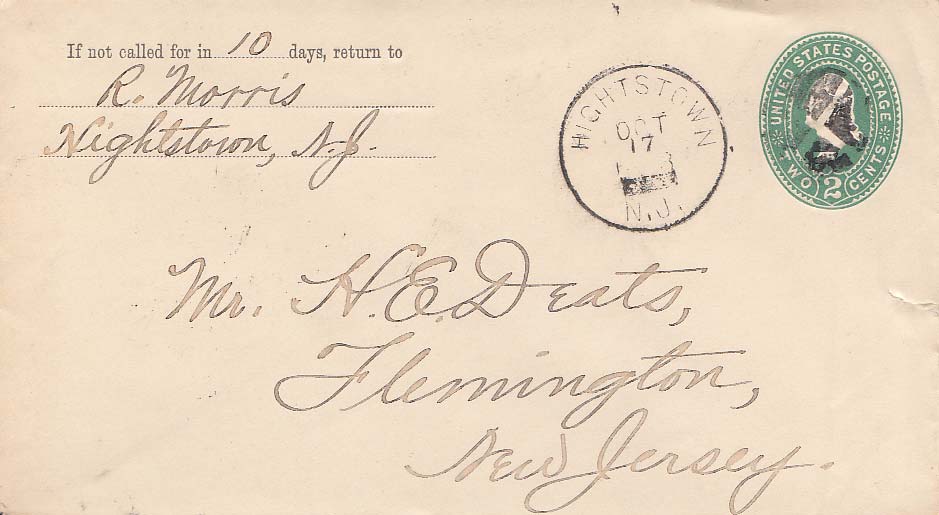 If not called for in 10 days, return to
R. Morris
Hightstown, N.J.
HIGHTSTOWN
OCT
17
N.J.
UNITED STATES POSTAGE
TWO 2 CENTS
Mr. H. E. Deats,
Flemington,
New Jersey.